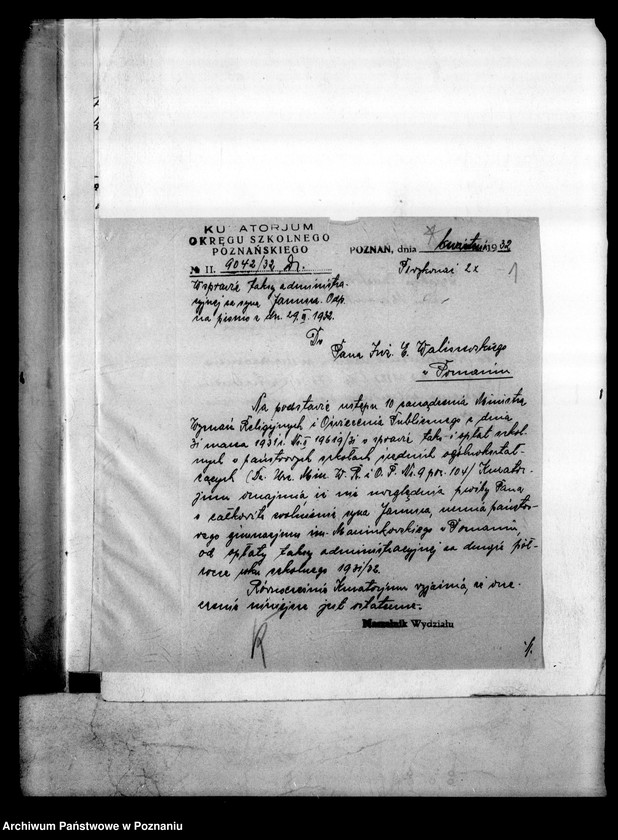 KU ATORJUM
OKRĘGU SZKOLNEGO
POZNAŃSKIEGO
№ II. 9042/32 Dr.
POZNAŃ, dnia 7 kwietnia 1932
Przykonać 2x
1
W sprawie taksy administra-
cyjnej za syna Janusza. Odp.
na pismo z dn. 29.II.1932.
Do
Pana Inż. E. Waliszewskiego
w Poznaniu
Na podstawie ustępu 10 zarządzenia Ministra
Wyznań Religijnych i Oświecenia Publicznego z dnia
31 marca 1931 r. No I 19619/31 w sprawie taks i opłat szkol-
nych w państwowych szkołach średnich ogólnokształ-
cących (Dz. Urz. Min. W. R. i O. P. No 4 poz. 104) Kurator-
jum oznajmia iż nie uwzględnia prośby Pana
o całkowite zwolnienie syna Janusza, ucznia państwo-
wego gimnazjum im. Marcinkowskiego w Poznaniu,
od opłaty taksy administracyjnej za drugie pół-
rocze roku szkolnego 1931/32.
Równocześnie Kuratorjum wyjaśnia, iż orze-
czenie niniejsze jest ostateczne.
Naczelnik Wydziału
Archiwum Państwowe w Poznaniu